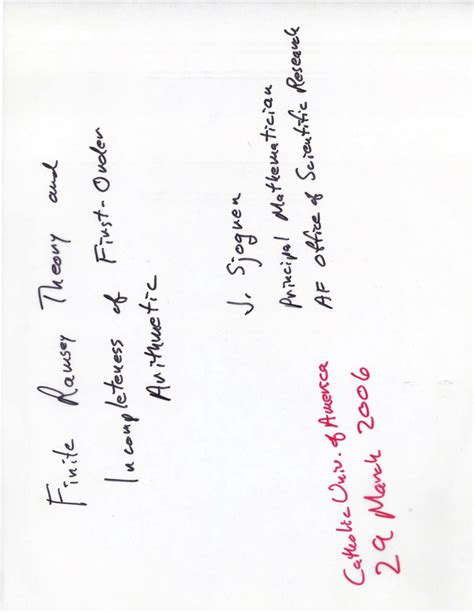 Finite Ramsey Theory and
Incompleteness of First-Order
Arithmetic
J. Sjoguen
Principal Mathematician
AF Office of Scientific Research
Catholic Univ. of America
29 March 2006